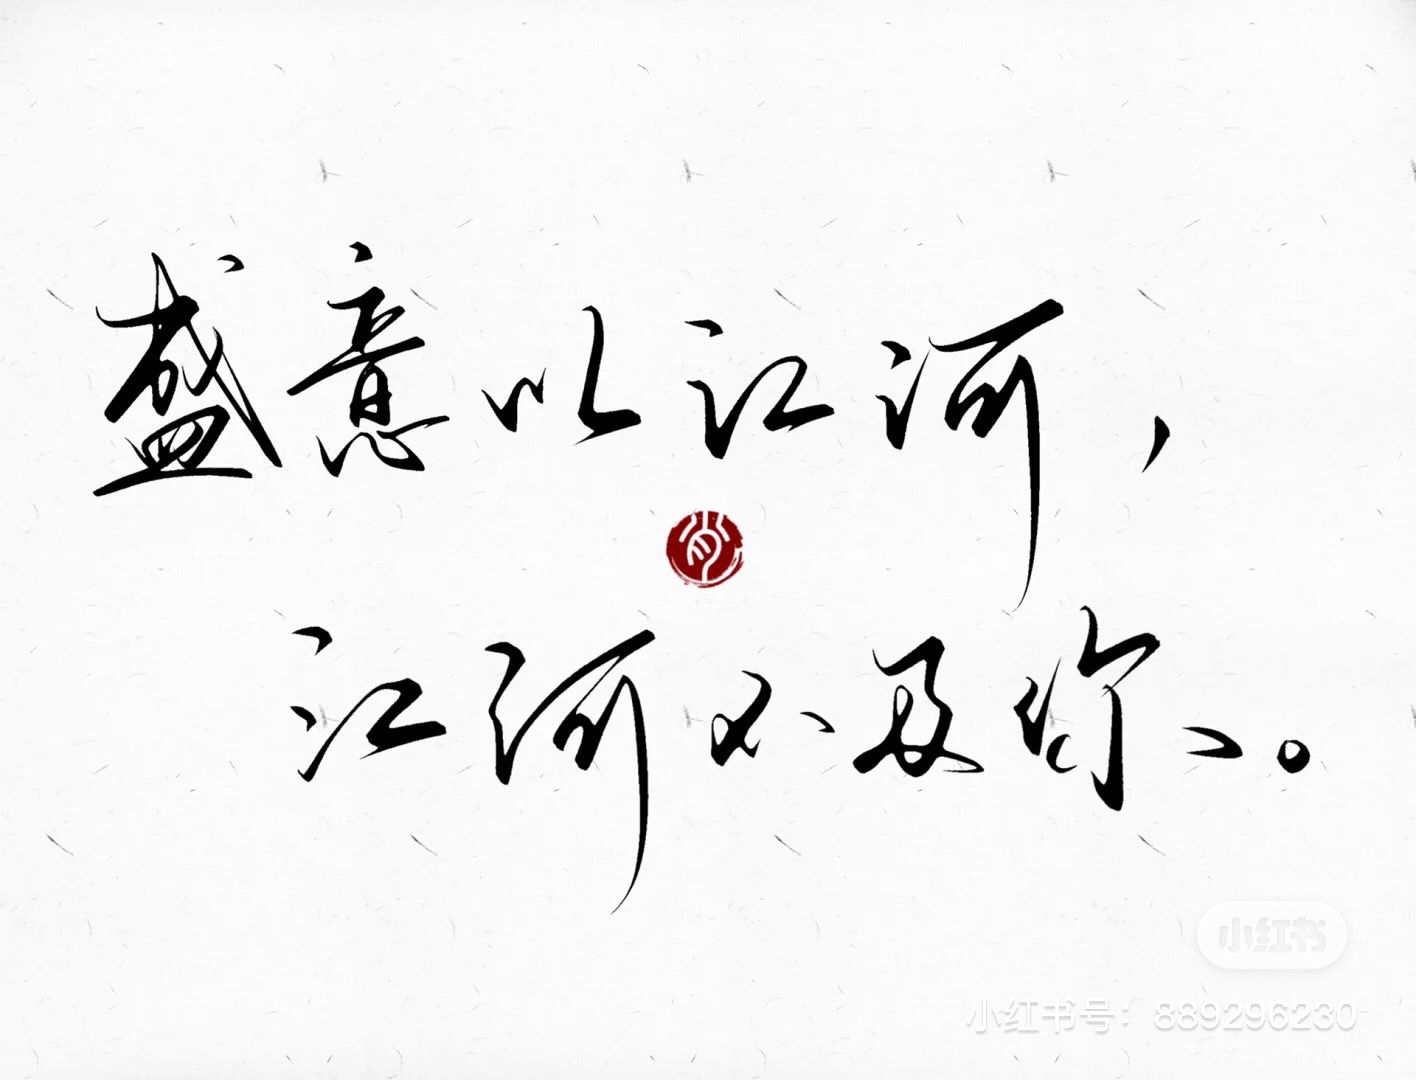 盛意以江河，
江河不及你。
小红书
小红书号：889296230